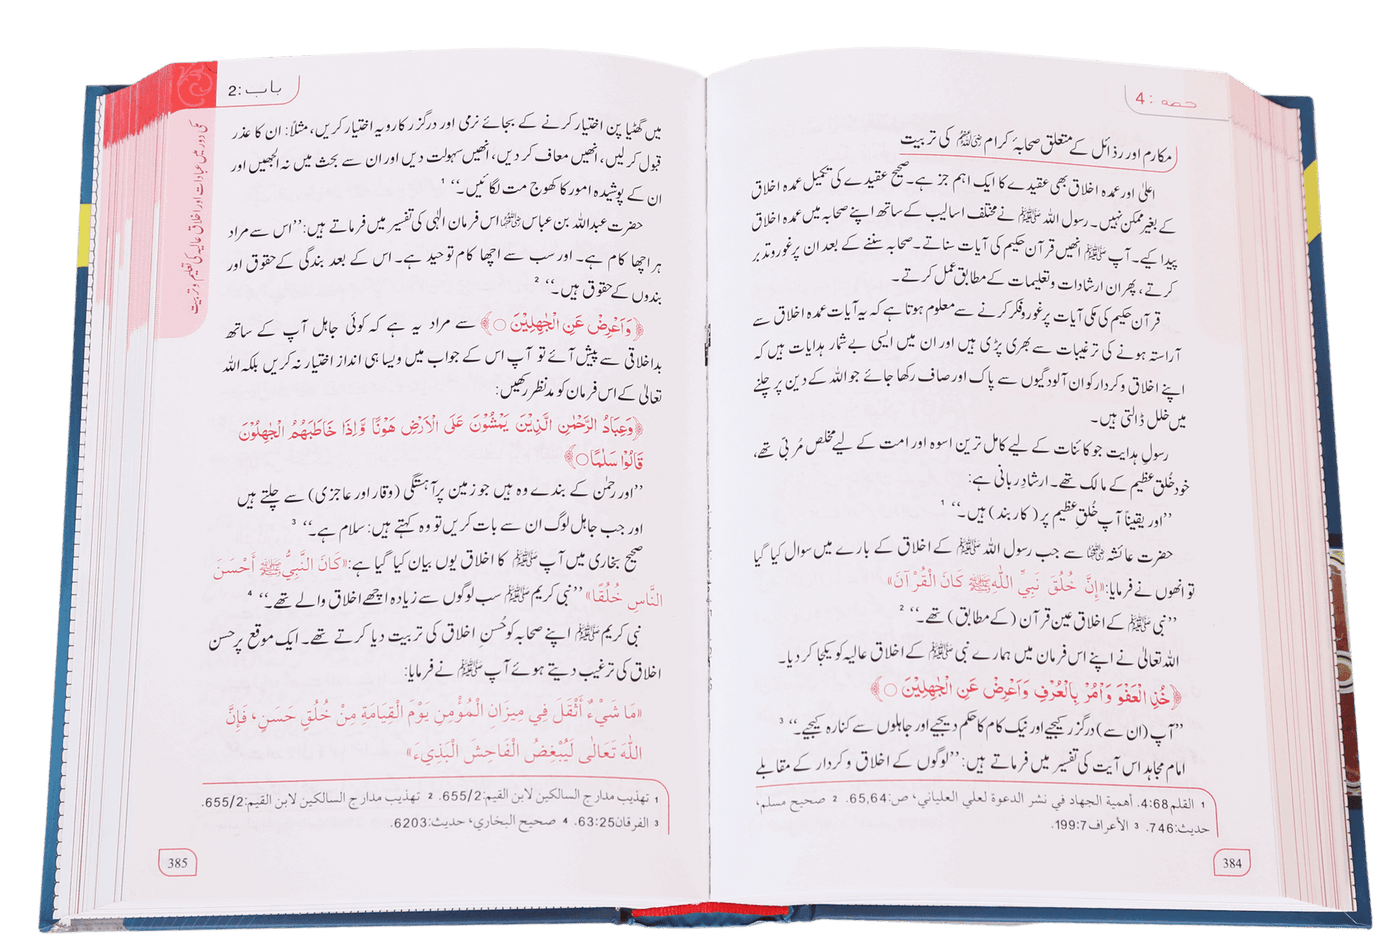 حصہ : 4
مکارم اور رذائل کے متعلق صحابۂ کرام ﷺ کی تربیت
اعلیٰ اور عمدہ اخلاق بھی عقیدے کا ایک اہم جز ہے۔ صحیح عقیدے کی تکمیل عمدہ اخلاق
کے بغیر ممکن نہیں۔ رسول اللہ ﷺ نے مختلف اسالیب کے ساتھ اپنے صحابہ میں عمدہ اخلاق
پیدا کیے۔ آپ ﷺ انھیں قرآن حکیم کی آیات سناتے۔ صحابہ سننے کے بعد ان پر غور و تدبر
کرتے، پھر ان ارشادات و تعلیمات کے مطابق عمل کرتے۔
قرآن حکیم کی مکی آیات پر غور و فکر کرنے سے معلوم ہوتا ہے کہ یہ آیات عمدہ اخلاق سے
آراستہ ہونے کی ترغیبات سے بھری پڑی ہیں اور ان میں ایسی بے شمار ہدایات ہیں کہ
اپنے اخلاق و کردار کو ان آلودگیوں سے پاک اور صاف رکھا جائے جو اللہ کے دین پر چلنے
میں خلل ڈالتی ہیں۔
رسولِ ہدایت جو کائنات کے لیے کامل ترین اسوہ اور امت کے لیے مخلص مُربّی تھے،
خود خُلقِ عظیم کے مالک تھے۔ ارشادِ ربانی ہے:
’’اور یقیناً آپ خُلقِ عظیم پر (کار بند) ہیں۔‘‘ 1
حضرت عائشہ ؓ سے جب رسول اللہ ﷺ کے اخلاق کے بارے میں سوال کیا گیا
تو انھوں نے فرمایا: «إِنَّ خُلُقَ نَبِيِّ اللّٰهِ ﷺ كَانَ الْقُرْآنَ»
’’نبی ﷺ کے اخلاق عین قرآن (کے مطابق) تھے۔‘‘ 2
اللہ تعالیٰ نے اپنے اس فرمان میں ہمارے نبی ﷺ کے اخلاق عالیہ کو یکجا کر دیا۔
﴿خُذِ الْعَفْوَ وَأْمُرْ بِالْعُرْفِ وَاَعْرِضْ عَنِ الْجٰهِلِيْنَ ○﴾
’’آپ (ان سے) درگزر کیجیے اور نیک کام کا حکم دیجیے اور جاہلوں سے کنارہ کیجیے۔‘‘ 3
امام مجاہد اس آیت کی تفسیر میں فرماتے ہیں: ’’لوگوں کے اخلاق و کردار کے مقابلے
1 القلم 4:68. أهمية الجهاد في نشر الدعوة لعلي العلياني، ص: 65,64. 2 صحيح مسلم،
حديث: 746. 3 الأعراف 199:7.
384
باب :2
مکی دور میں عبادات اور اخلاق عالیہ کی تعلیم و تربیت
میں گھٹیا پن اختیار کرنے کے بجائے نرمی اور درگزر کا رویہ اختیار کریں، مثلاً: ان کا عذر
قبول کر لیں، انھیں معاف کر دیں، انھیں سہولت دیں اور ان سے بحث میں نہ الجھیں اور
ان کے پوشیدہ امور کا کھوج مت لگائیں۔‘‘ 1
حضرت عبداللہ بن عباس ؓ اس فرمان الٰہی کی تفسیر میں فرماتے ہیں: ’’اس سے مراد
ہر اچھا کام ہے۔ اور سب سے اچھا کام توحید ہے۔ اس کے بعد بندگی کے حقوق اور
بندوں کے حقوق ہیں۔‘‘ 2
﴿وَاَعْرِضْ عَنِ الْجٰهِلِيْنَ ○﴾ سے مراد یہ ہے کہ کوئی جاہل آپ کے ساتھ
بداخلاقی سے پیش آئے تو آپ اس کے جواب میں ویسا ہی انداز اختیار نہ کریں بلکہ اللہ
تعالیٰ کے اس فرمان کو مدنظر رکھیں:
﴿وَعِبَادُ الرَّحْمٰنِ الَّذِيْنَ يَمْشُوْنَ عَلَى الْاَرْضِ هَوْنًا وَّاِذَا خَاطَبَهُمُ الْجٰهِلُوْنَ
قَالُوْا سَلٰمًا ○﴾
’’اور رحمٰن کے بندے وہ ہیں جو زمین پر آہستگی (وقار اور عاجزی) سے چلتے ہیں
اور جب جاہل لوگ ان سے بات کریں تو وہ کہتے ہیں: سلام ہے۔‘‘ 3
صحیح بخاری میں آپ ﷺ کا اخلاق یوں بیان کیا گیا ہے: «كَانَ النَّبِيُّ ﷺ أَحْسَنَ
النَّاسِ خُلُقًا» ’’نبی کریم ﷺ سب لوگوں سے زیادہ اچھے اخلاق والے تھے۔‘‘ 4
نبی کریم ﷺ اپنے صحابہ کو حُسنِ اخلاق کی تربیت دیا کرتے تھے۔ ایک موقع پر حسن
اخلاق کی ترغیب دیتے ہوئے آپ ﷺ نے فرمایا:
«مَا شَيْءٌ أَثْقَلُ فِي مِيزَانِ الْمُؤْمِنِ يَوْمَ الْقِيَامَةِ مِنْ خُلُقٍ حَسَنٍ، فَإِنَّ
اللّٰهَ تَعَالٰى لَيُبْغِضُ الْفَاحِشَ الْبَذِيءَ»
1 تهذيب مدارج السالكين لابن القيم: 655/2. 2 تهذيب مدارج السالكين لابن القيم: 655/2.
3 الفرقان 63:25. 4 صحيح البخاري، حديث: 6203.
385